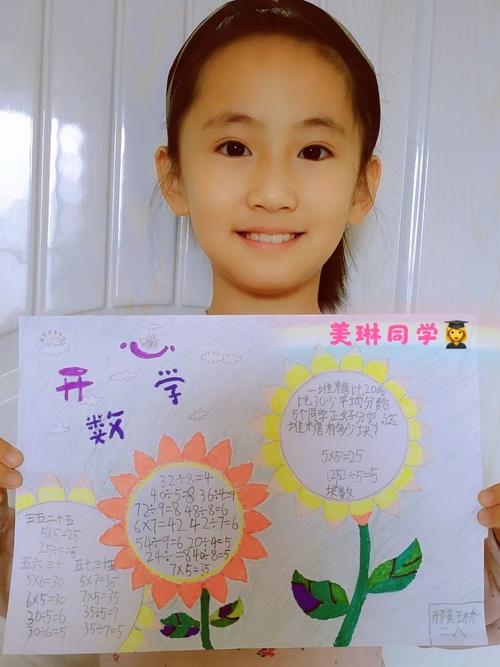 美琳同学
开 学
数
一堆糖比20多
比30少平均分给
5个同学正好分完。这
堆糖有多少块？
5×5=25
(25)÷5=5
块数
32÷8=4
40÷5=8 36÷4=9
72÷9=8 48÷8=6
6×7=42 42÷7=6
54÷9=6 20÷4=5
24÷ =8 40÷8=5
7×5=35
五五二十五
5×5=25
25÷5=5
五六三十 五七三十五
5×6=30 5×7=35
6×5=30 7×5=35
30÷5=6 35÷5=7
30÷6=5 35÷7=5
邢美琳
二八